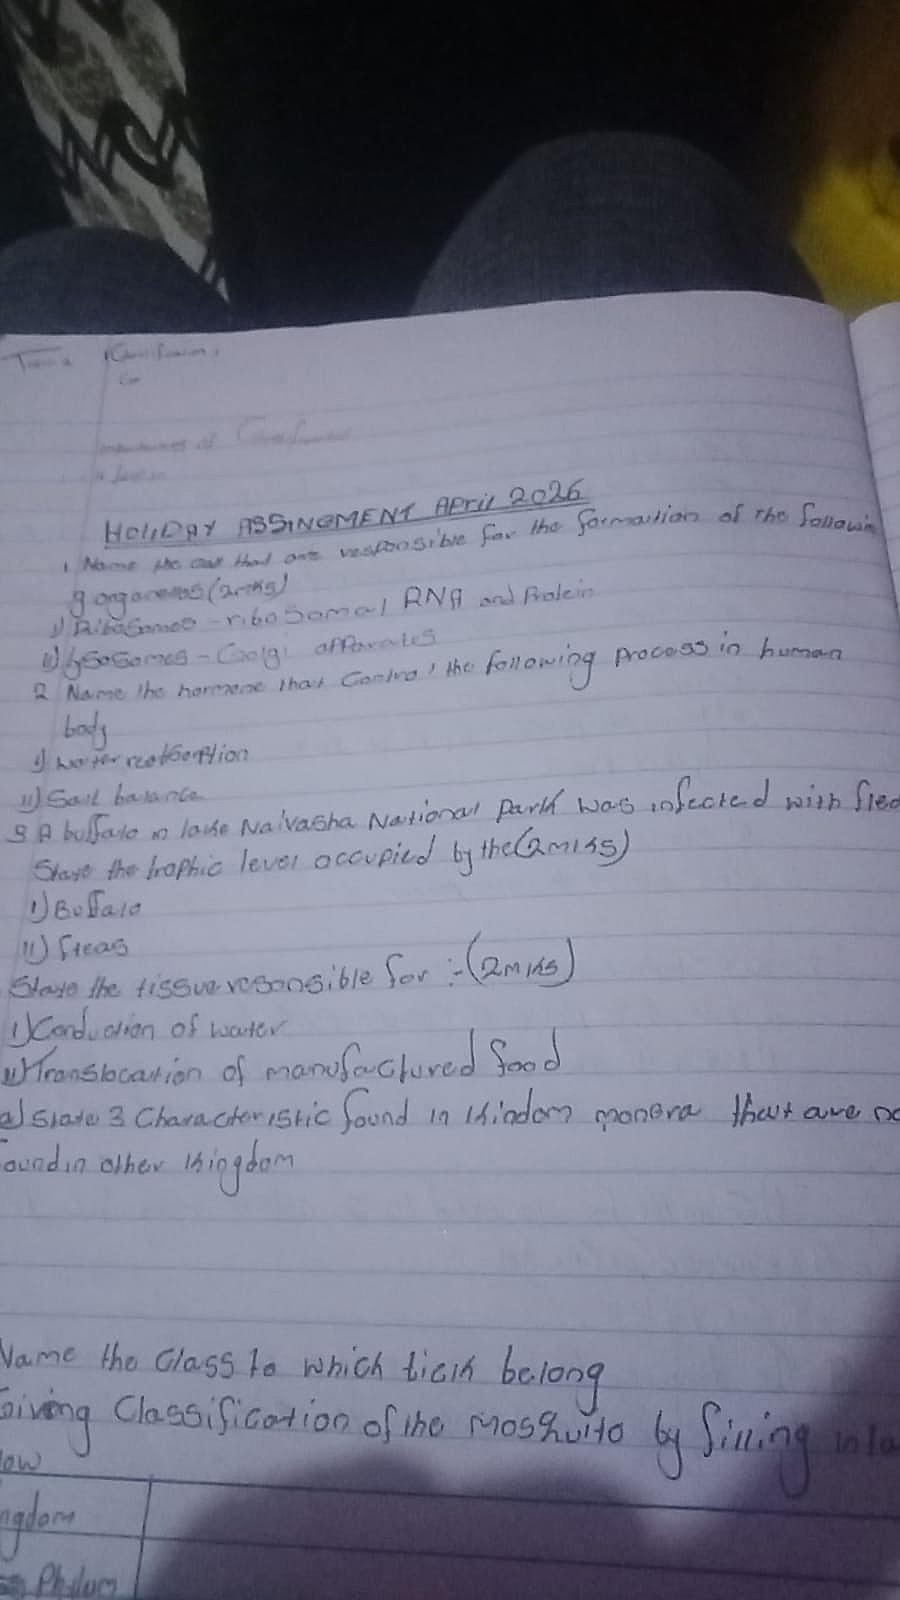 HOLIDAY ASSINGMENT April 2026
1 Name the that are responsible for the formation of the followin
g organelles (2mks)
i) Ribosomes - ribosomal RNA and Protein
ii) lysosomes - Golgi apparatus
2 Name the hormone that Control the following process in human
body
i) water reabsorption
ii) Salt balance
3 A buffalo in lake Naivasha National park was infected with flea
State the trophic level occupied by the (2mks)
i) Buffalo
ii) fleas
State the tissue resonsible for :- (2mks)
i) Conduction of water
ii) Translocation of manufactured food
a) State 3 Characteristic found in Kindom monera that are no
ound in other kingdom
Name the Class to which tick belong
Giving Classification of the Mosquito by filling in ta
low
ngdom
Phylum